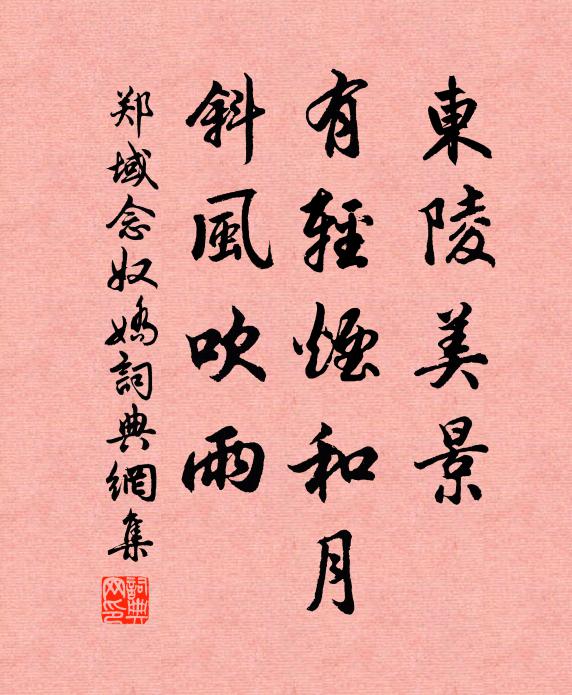 東陵美景
有輕煙和月
斜風吹雨
郑域念奴嬌詞典網集
詞典网印